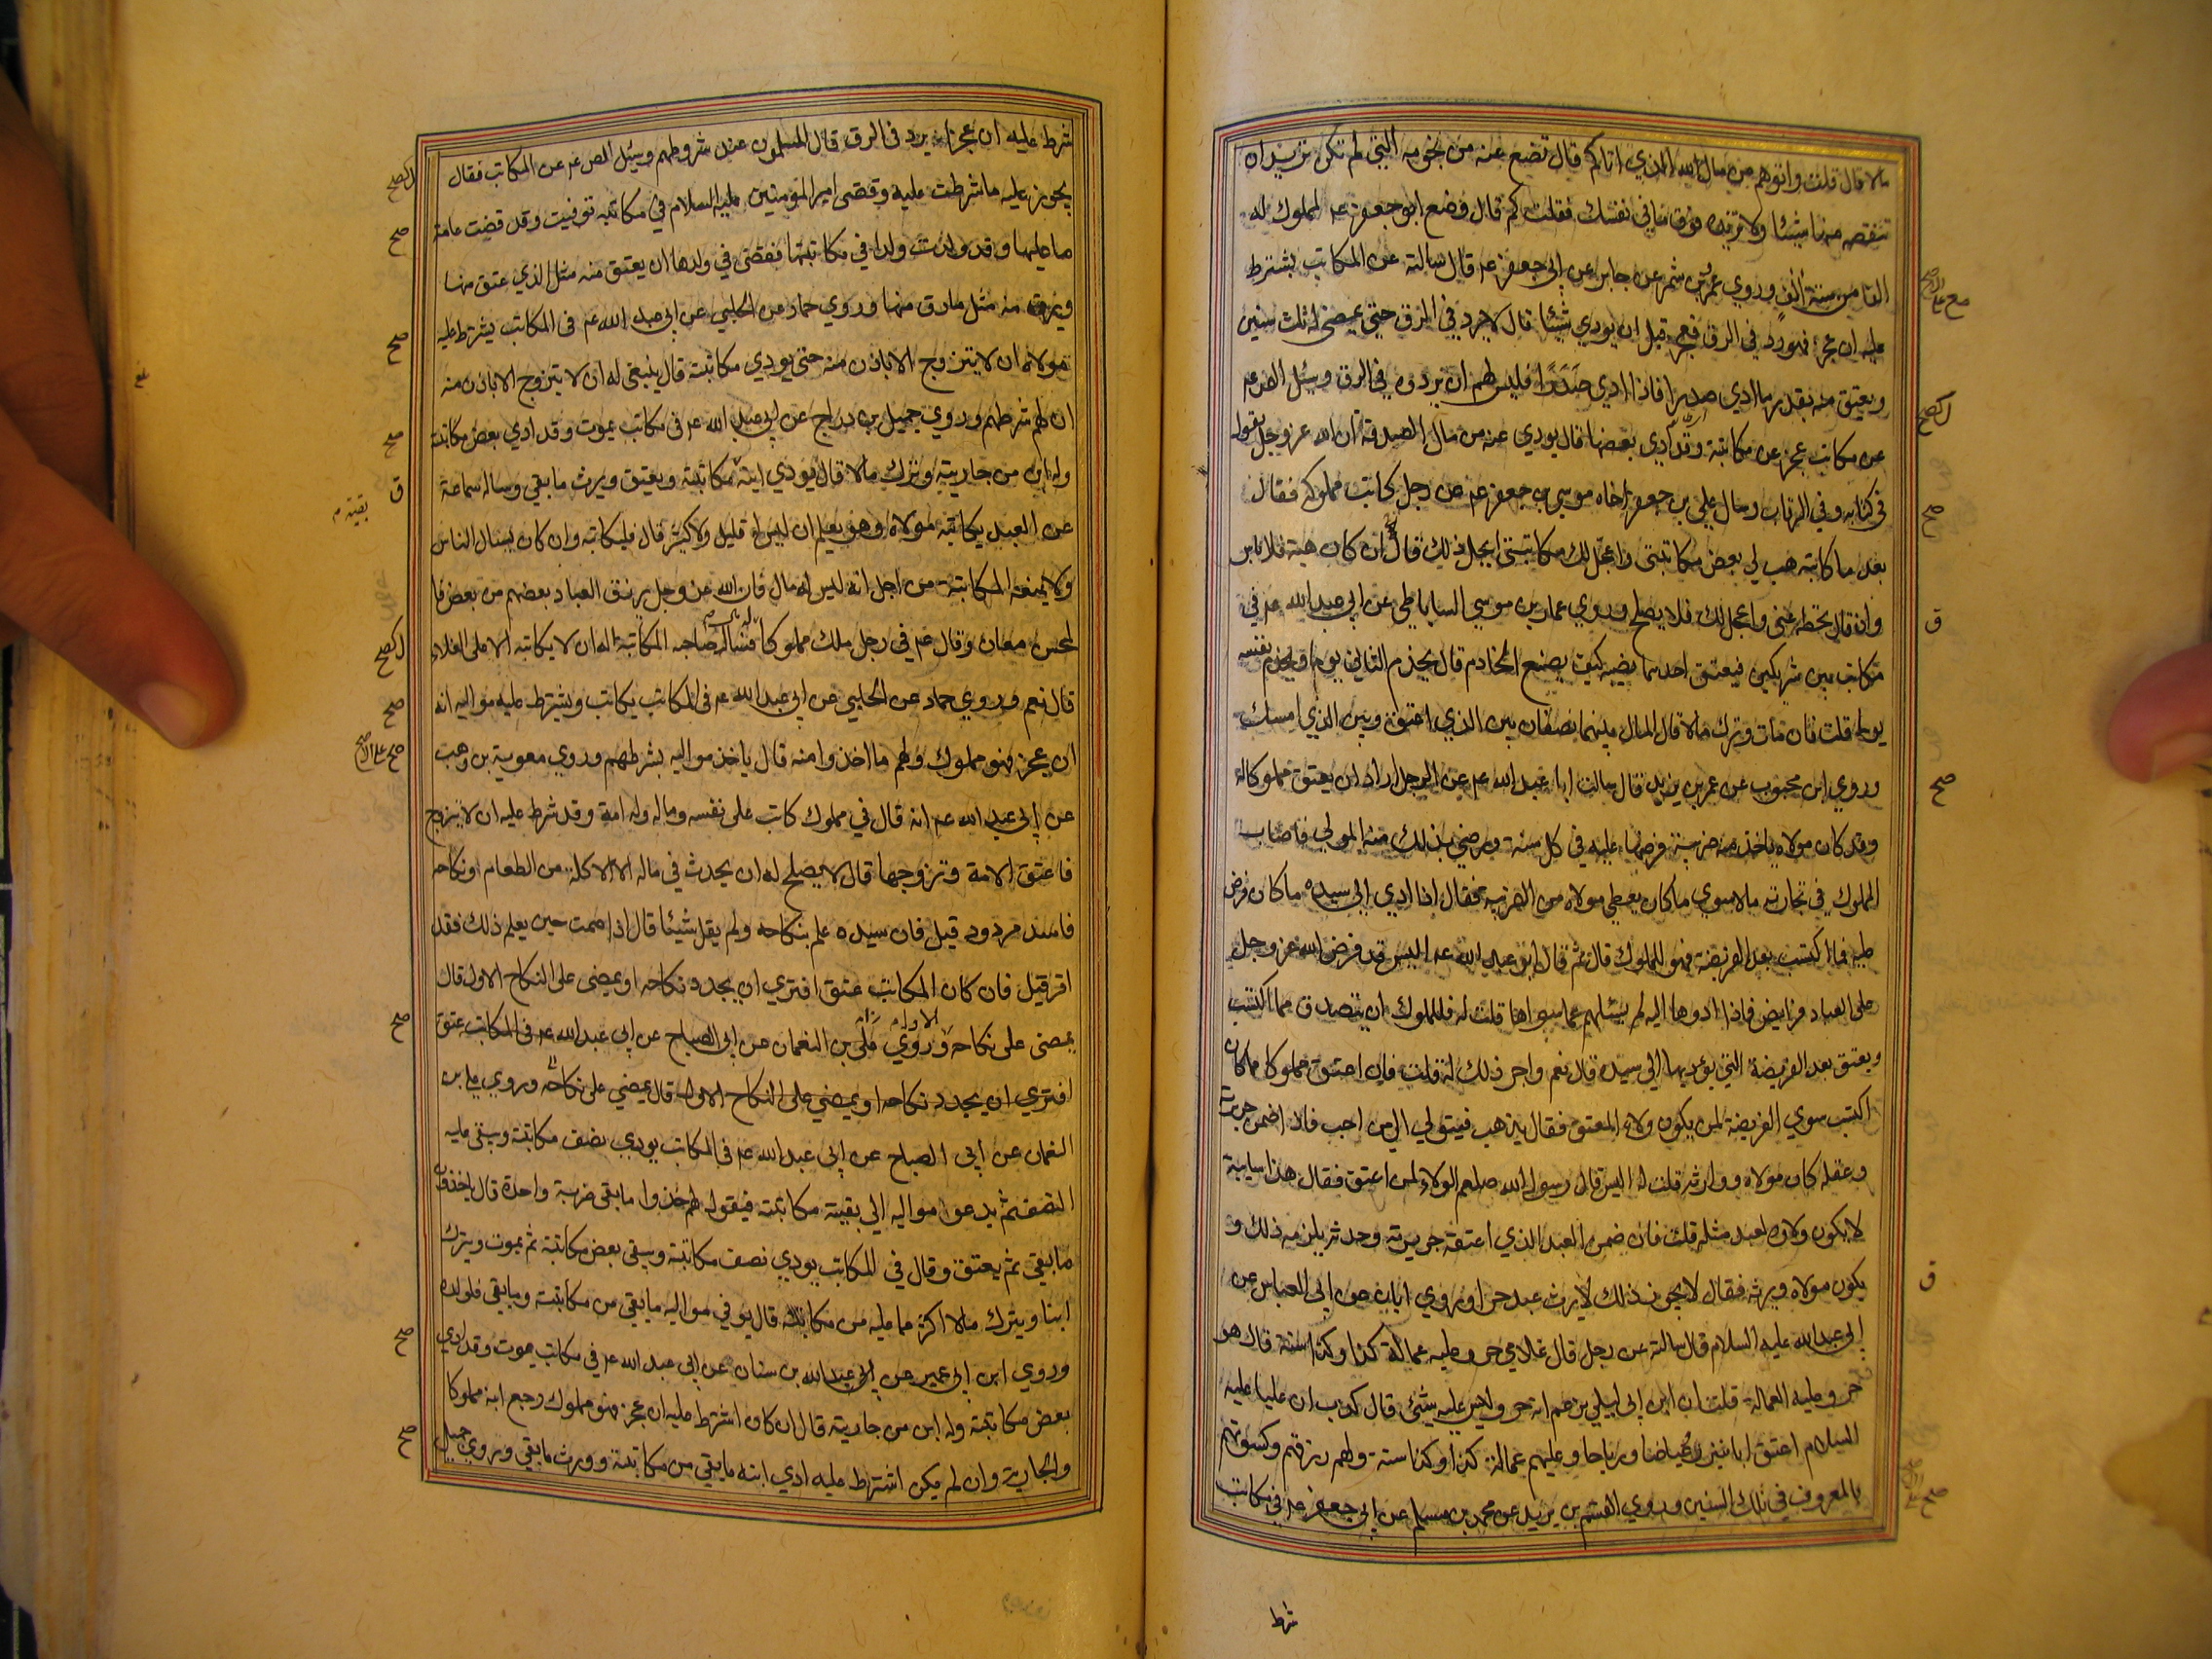 مالا قال قلت واتوهم من مال الله الذي اتاكم قال تضع عنه من نجومه التي لم تكن تريد ان
تنقصه منها شيئا ولا تزيد فوق ما في نفسك فقلت كم قال وضع ابو جعفر عم لمملوك له
الفا من ستة الف وروي عمرو بن شمر عن جابر عن ابي جعفر عم قال سالته عن المكاتب يشترط
عليه ان عجز فهو رد في الرق فعجز قبل ان يودي شيئا قال لا يرد في الرق حتى يمضي له ثلث سنين
ويعتق منه بقدر ما ادي صدرا فاذا ادي صدرا فليس لهم ان يردوه في الرق وسئل الص عم
عن مكاتب عجز عن مكاتبته وقد ادي بعضها قال يودي عنه من مال الصدقة ان الله عز وجل يقول
في كتابه وفي الرقاب وسال علي بن جعفر اخاه موسى بن جعفر عم عن رجل كاتب مملوكه فقال
بعد ما كاتبه هب لي بعض مكاتبتي واعجل لك مكاتبتي ايحل ذلك قال ان كان هبة فلا باس
وان قال تحط عني واعجل لك فلا يصلح وروي عمار بن موسى الساباطي عن ابي عبد الله عم في
مكاتب بين شريكين فيعتق احدهما نصيبه كيف يصنع الخادم قال يخدم الثاني يوما ويخدم نفسه
يوما قلت فان مات وترك مالا قال المال بينهما نصفان بين الذي اعتق وبين الذي امسك
وروي ابن محبوب عن عمر بن يزيد قال سالت ابا عبد الله عم عن الرجل اراد ان يعتق مملوكا له
وقد كان مولاه ياخذ منه ضريبة فرضها عليه في كل سنة ورضي بذلك منه المولى فاصاب
المملوك في تجارته مالا سوي ما كان يعطي مولاه من الضريبة فقال اذا ادي الى سيده ما كان فرض
عليه فما اكتسب بعد الفريضة فهو للمملوك قال ثم قال ابو عبد الله عم اليس قد فرض الله عز وجل
على العباد فرايض فاذا ادوها اليه لم يسئلهم عما سواها قلت له فللمملوك ان يتصدق مما اكتسب
ويعتق بعد الفريضة التي يؤديها الى سيده قال نعم واجر ذلك له قلت فان اعتق مملوكا مما كان
اكتسب سوي الفريضة لمن يكون ولاء المعتق فقال يذهب فيتولى الى من احب فاذا ضمن جريرته
وعقله كان مولاه ووارثه قلت له اليس قال رسول الله صلعم الولاء لمن اعتق فقال هذا سايبة
لا يكون ولاؤه لعبد مثله قلت فان ضمن العبد الذي اعتقه جريرته وحدثه يلزمه ذلك و
يكون مولاه ويرثه فقال لا يجوز ذلك لا يرث عبد حرا وروي ابان عن ابي العباس عن
ابي عبد الله عليه السلام قال سالته عن رجل قال غلامي حر وعليه عمالة كذا وكذا سنة قال هو
حر وعليه العمالة قلت ان ابن ابي ليلى يزعم انه حر وليس عليه شئ قال كذب ان عليا عليه
السلام اعتق ابا نيزر وعياضا ورباحا وعليهم عمالة كذا وكذا سنة ولهم رزقهم وكسوتهم
بالمعروف في تلك السنين وروي القسم بن بريد عن محمد بن مسلم عن ابي جعفر عم في مكاتب
شرط
شرط عليه ان عجز ان يرد في الرق قال المسلمون عند شروطهم وسئل الص عم عن المكاتب فقال
يجوز عليه ما شرطت عليه وقضى امير المؤمنين عليه السلام في مكاتبه توفيت وقد قضت عامة
ما عليها وقد ولدت ولدا في مكاتبتها فقضى في ولدها ان يعتق منه مثل الذي عتق منها
ويرق منه مثل ما رق منها وروي حماد عن الحلبي عن ابي عبد الله عم في المكاتب يشترط عليه
مولاه ان لا يتزوج الا باذن منه حتى يودي مكاتبته قال ينبغي له ان لا يتزوج الا باذن منه
ان لهم شرطهم وروي جميل بن دراج عن ابي عبد الله عم في مكاتب يموت وقد ادي بعض مكاتبته
وله ابن من جاريته وترك مالا قال يودي ابنه مكاتبته ويعتق ويرث ما بقي وساله سماعة
عن العبد يكاتبه مولاه وهو يعلم ان ليس له قليل ولا كثير قال فليكاتبه وان كان يسئل الناس
ولا يمنعه المكاتبة من اجل انه ليس له مال فان الله عز وجل يرزق العباد بعضهم من بعض فا
لمحسن معان وقال عم في رجل ملك مملوكا فسال صاحبه المكاتبة اله ان لا يكاتبه الا على الغلاء
قال نعم وروي حماد عن الحلبي عن ابي عبد الله عم في المكاتب يكاتب ويشترط عليه مواليه انه
ان عجز فهو مملوك ولهم ما اخذوا منه قال ياخذ مواليه بشرطهم وروي معوية بن وهب
عن ابي عبد الله عم انه قال في مملوك كاتب على نفسه وماله وله امة وقد شرط عليه ان لا يتزوج
فاعتق الامة وتزوجها قال لا يصلح له ان يحدث في ماله الا الاكلة من الطعام ونكاحه
فاسد مردود قيل فان سيده علم بنكاحه ولم يقل شيئا قال اذا صمت حين يعلم ذلك فقد
اقر قيل فان كان المكاتب عتق افتري ان يجدد نكاحه او يمضى على النكاح الاول قال
يمضى على نكاحه الاول وروي علي بن النعمان عن ابي الصباح عن ابي عبد الله عم في المكاتب عتق
افتري ان يجدد نكاحه او يمضي على النكاح الاول قال يمضي على نكاحه وروي علي بن
النعمان عن ابي الصباح عن ابي عبد الله عم في المكاتب يودي نصف مكاتبته ويبقى عليه
النصف ثم يدعو مواليه الى بقية مكاتبته فيقول لهم خذوا ما بقي ضربة واحدة قال ياخذون
ما بقي ثم يعتق وقال في المكاتب يودي نصف مكاتبته ويبقى بعض مكاتبته ثم يموت ويترك
ابنا ويترك مالا اكثر مما عليه من مكاتبته قال يوفي مواليه ما بقي من مكاتبته وما بقي فلولده
وروي ابن ابي عمير عن عبد الله بن سنان عن ابي عبد الله عم في مكاتب يموت وقد ادي
بعض مكاتبته وله ابن من جاريته قال ان كان اشترط عليه ان عجز فهو مملوك رجع ابنه مملوكا
والجارية وان لم يكن اشترط عليه ادي ابنه ما بقي من مكاتبته وورث ما بقي وروي جميل